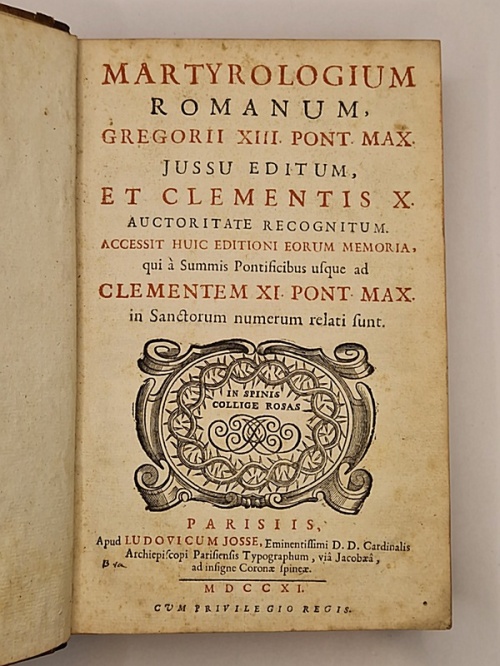 MARTYROLOGIUM
ROMANUM,
GREGORII XIII. PONT. MAX.
JUSSU EDITUM,
ET CLEMENTIS X.
AUCTORITATE RECOGNITUM.
ACCESSIT HUIC EDITIONI EORUM MEMORIA,
qui à Summis Pontificibus uſque ad
CLEMENTEM XI. PONT. MAX.
in Sanctorum numerum relati ſunt.
IN SPINIS
COLLIGE ROSAS
PARISIIS,
Apud LUDOVICUM JOSSE, Eminentiſſimi D. D. Cardinalis
Archiepiſcopi Pariſienſis Typographum, viâ Jacobæâ,
ad inſigne Coronæ ſpineæ.
MDCCXI.
CVM PRIVILEGIO REGIS.